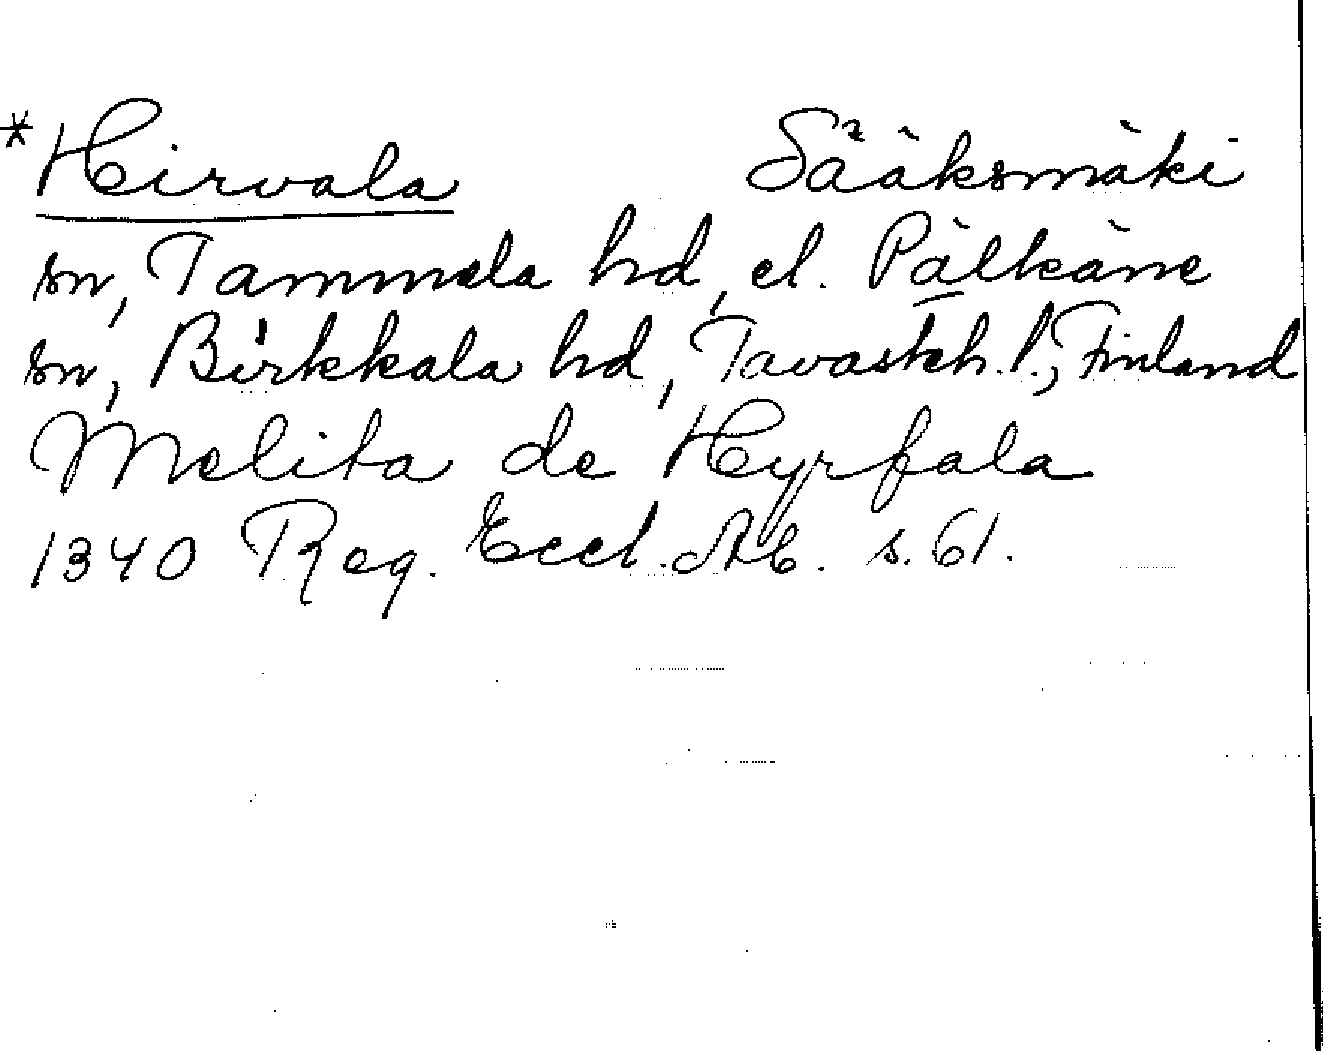 *Hirvala Sääksmäki
sn, Tammela hd, el. Pälkäne
sn, Birkkala hd, Tavasteh. l., Finland
Melita de Hyrfala
1340 Reg. Eccl. Ab. s. 61.